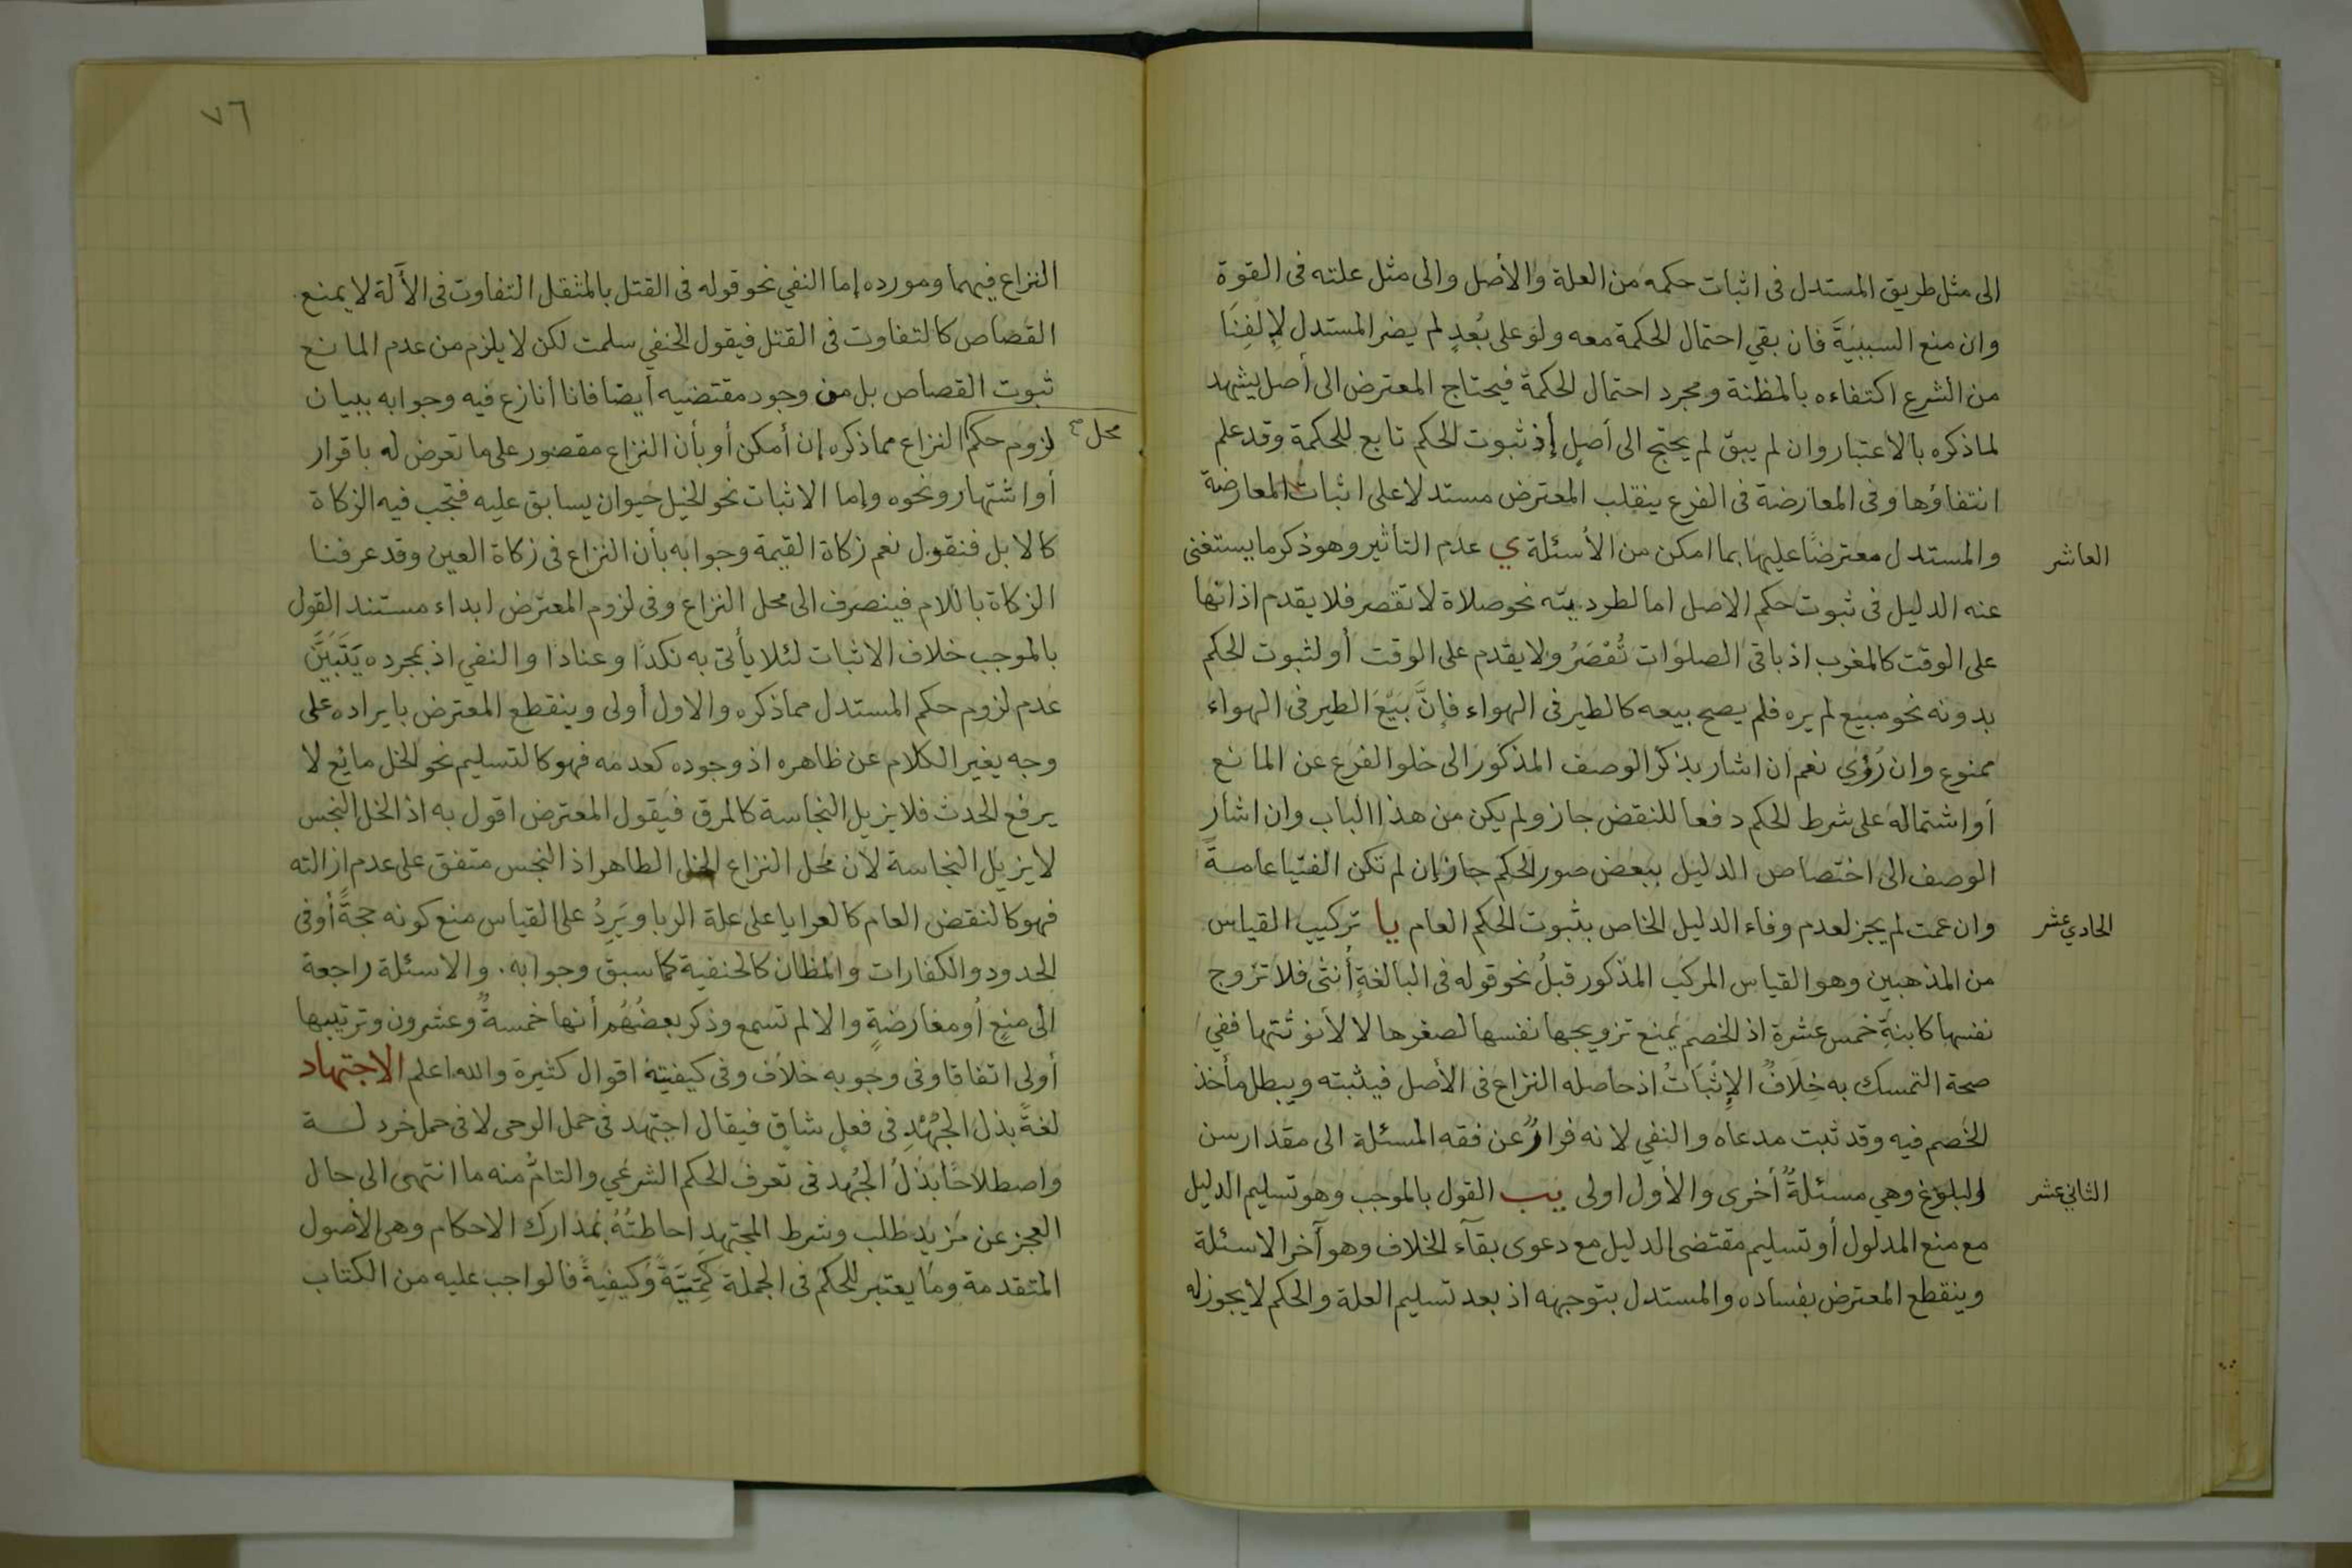 الى مثل طريق المستدل فى اثبات حكمه من العلة والأصل والى مثل علته فى القوة
وان منع السببيَّةَ فان بقي احتمال الحكمة معه ولو على بُعدٍ لم يضر المستدل لإلفِنَا
من الشرع اكتفاءه بالمظنة ومجرد احتمال الحكمة فيحتاج المعترض الى أصل يشهد
لما ذكره بالاعتبار وان لم يبق لم يحتج الى أصلٍ إذ ثبوت الحكم تابع للحكمة وقد علم
انتفاؤها وفى المعارضة فى الفرع ينقلب المعترض مستدلا على اثبات المعارضة
العاشر
والمستدل معترضًا عليها بما امكن من الأسئلة ي عدم التأثير وهو ذكر ما يستغنى
عنه الدليل فى ثبوت حكم الاصل اما لطرديته نحو صلاة لا تقصر فلا يقدم اذانها
على الوقت كالمغرب اذ باقى الصلوات تُقْصَرُ ولا يقدم على الوقت أو لثبوت الحكم
بدونه نحو مبيع لم يره فلم يصح بيعه كالطير فى الهواء فإنَّ بَيْعَ الطير فى الهواء
ممنوع وان رُؤي نعم ان اشار بذكر الوصف المذكور الى خلو الفرع عن المانع
أو اشتماله على شرط الحكم دفعا للنقض جاز ولم يكن من هذا الباب وان اشار
الوصف الى اختصاص الدليل ببعض صور الحكم جاز إن لم تكن الفتيا عامةً
الحادي عشر
وان عمت لم يجز لعدم وفاء الدليل الخاص بثبوت الحكم العام يا تركيب القياس
من المذهبين وهو القياس المركب المذكور قبلُ نحو قوله فى البالغةِ أُنثى فلا تزوج
نفسها كابنةِ خمس عشرة اذ الخصم يمنع تزويجها نفسها لصغرها لا لأنوثتها ففي
صحة التمسك به خِلافٌ الإثْبَاتُ اذ حاصله النزاع فى الأصل فيثبته ويبطل مأخذ
الخصم فيه وقد ثبت مدعاه والنفي لانه فرارٌ عن فقه المسئلة الى مقدار سن
الثاني عشر
البلوغ وهي مسئلةٌ أخرى والأول اولى يب القول بالموجب وهو تسليم الدليل
مع منع المدلول أو تسليم مقتضى الدليل مع دعوى بقآء الخلاف وهو آخر الاسئلة
وينقطع المعترض بفساده والمستدل بتوجهه اذ بعد تسليم العلة والحكم لا يجوز له
٧٦
النزاع فيهما ومورده إما النفي نحو قوله فى القتل بالمثقل التفاوت فى الآلة لا يمنع
القصاص كالتفاوت فى القتل فيقول الحنفي سلمت لكن لا يلزم من عدم المانع
ثبوت القصاص بل من وجود مقتضيه أيضا فانا أنازع فيه وجوابه ببيان
محل
لزوم حكم النزاع مما ذكره إن أمكن أو بأن النزاع مقصور على ما تعرض له باقرار
أو اشتهار ونحوه وإما الاثبات نحو الخيل حيوان يسابق عليه فتجب فيه الزكاة
كالابل فنقول نعم زكاة القيمة وجوابه بأن النزاع فى زكاة العين وقد عرفنا
الزكاة باللام فينصرف الى محل النزاع وفى لزوم المعترض ابداء مستند القول
بالموجب خلاف الاثبات لئلا يأتى به نكدًا وعنادًا والنفي اذ بمجرده يَتَبَيَّن
عدم لزوم حكم المستدل مما ذكره والاول أولى وينقطع المعترض بايراده على
وجه يغير الكلام عن ظاهره اذ وجوده كعدمه فهو كالتسليم نحو الخل مائع لا
يرفع الحدث فلا يزيل النجاسة كالمرق فيقول المعترض اقول به اذ الخل النجس
لا يزيل النجاسة لأن محل النزاع الخل الطاهر اذ النجس متفق على عدم ازالته
فهو كالنقض العام كالعرايا على علة الربا ويَرِدُ على القياس منع كونه حجةً أو فى
الحدود والكفارات والمظان كالحنفية كما سبق وجوابه. والاسئلة راجعة
الى منعٍ أو معارضةٍ والا لم تسمع وذكر بعضُهُم أنها خمسةٌ وعشرون وترتيبها
أولى اتفاقا وفى وجوبه خلاف وفى كيفيته اقوال كثيرة والله اعلم الاجتهاد
لغةً بذل الجُهْدِ فى فعلٍ شاقٍ فيقال اجتهد فى حمل الرحى لا فى حمل خردلة
واصطلاحًا بَذْلُ الجُهد فى تعرف الحكم الشرعي والتامُّ منه ما انتهى الى حال
العجز عن مزيد طلب وشرط المجتهد احاطتُهُ بمدارك الاحكام وهى الأصول
المتقدمة وما يعتبر للحكم فى الجملة كَمِّيَّةً وكيفيةً فالواجب عليه من الكتاب